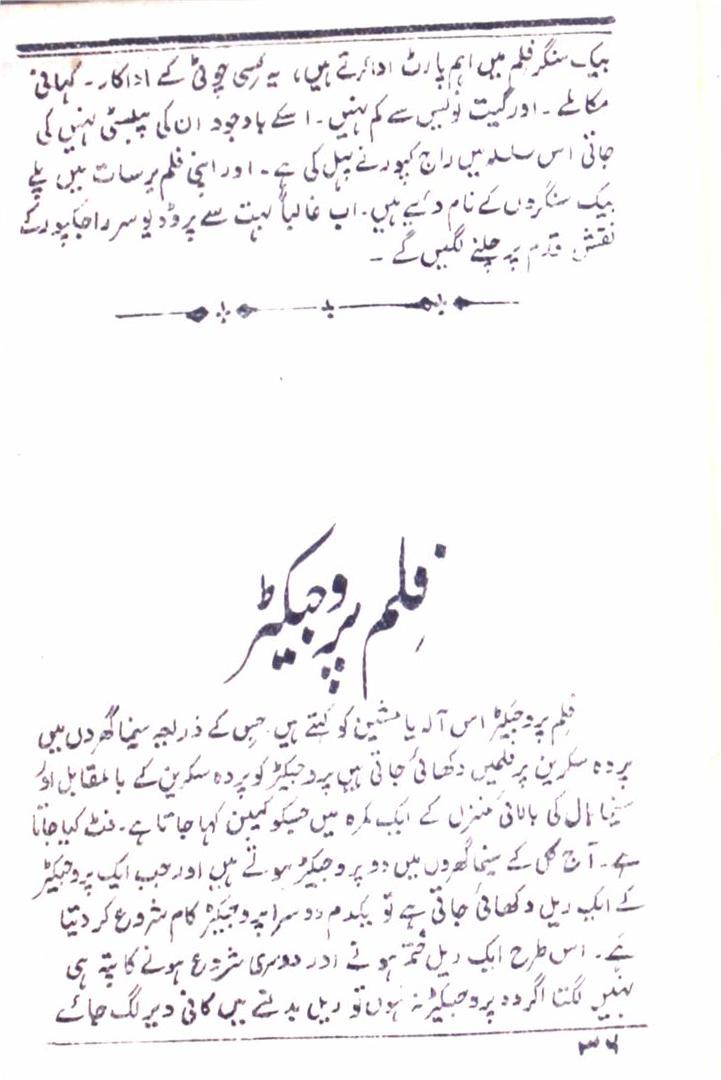 بیک سنگر فلم میں اہم پارٹ ادا کرتے ہیں، یہ کسی چوٹی کے اداکار۔ کہانی
مکالمے۔ اور گیت نویس سے کم نہیں۔ اسکے باوجود ان کی پبلسٹی نہیں کی
جاتی اس سلسلہ میں راج کپور نے پہل کی ہے۔ اور اپنی فلم برسات میں پلے
بیک سنگروں کے نام دیئے ہیں۔ اب غالباً بہت سے پروڈیوسر راجکپور کے
نقش قدم پر چلنے لگیں گے۔
فلم پروجیکٹر
فلم پروجیکٹر اس آلہ یا مشین کو کہتے ہیں جس کے ذریعہ سینما گھروں میں
پردہ سکرین پر فلمیں دکھائی جاتی ہیں پروجیکٹر کو پردہ سکرین کے بالمقابل اور
سینما ہال کی بالائی منزل کے ایک کمرہ میں جسکو کیبن کہا جاتا ہے۔ فٹ کیا جاتا
ہے۔ آج کل کے سینما گھروں میں دو پروجیکٹر ہوتے ہیں اور جب ایک پروجیکٹر
کے ایک ریل دکھائی جاتی ہے تو یکدم دوسرا پروجیکٹر کام شروع کر دیتا
ہے۔ اس طرح ایک ریل ختم ہونے اور دوسری شروع ہونے کا پتہ ہی
نہیں لگتا اگر دو پروجیکٹر نہ ہوں تو ریل بدلنے میں کافی دیر لگ جائے
۳۶